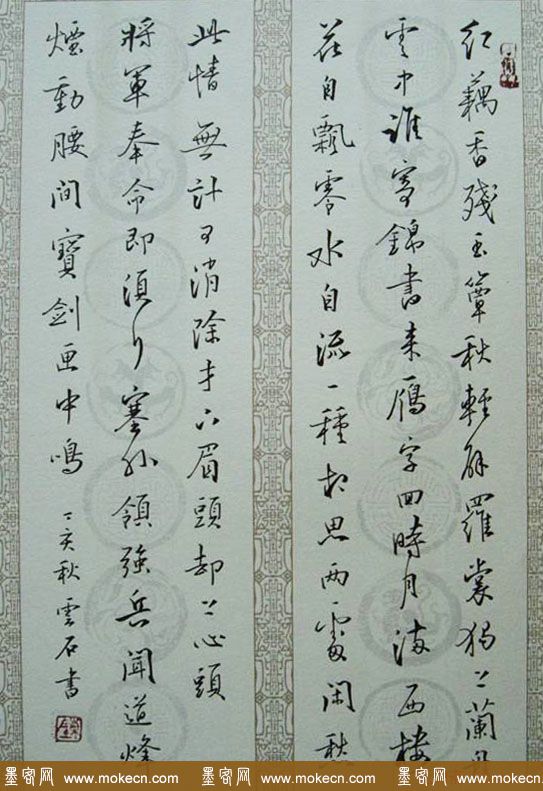 红藕香殘玉簟秋輕解羅裳獨上蘭舟
雲中誰寄錦書來雁字回時月滿西樓
花自飄零水自流一種相思兩處閑愁
此情無計可消除才下眉頭却上心頭
将軍奉命即須行塞外領強兵聞道烽
煙動腰間寶劍匣中鳴 丁亥秋雲石書
墨客网 www.mokecn.com 墨客网 www.mokecn.com 墨客网 www.mokecn.com